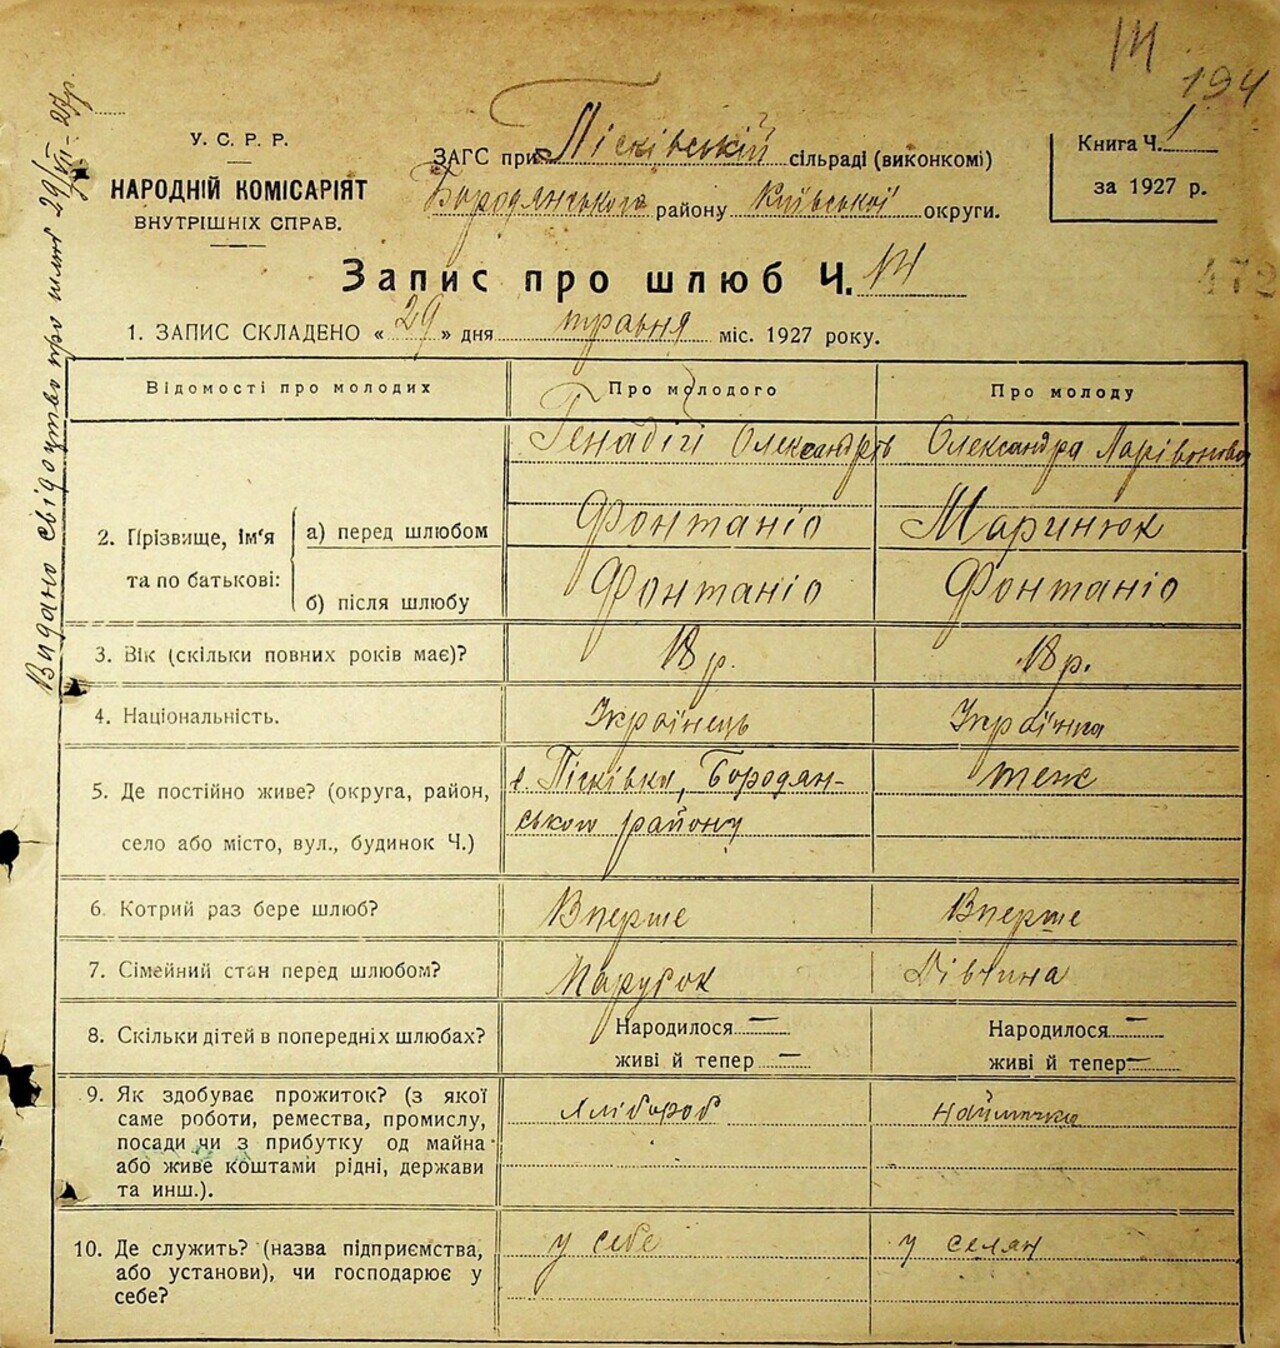 194
У. С. Р. Р.
НАРОДНІЙ КОМІСАРІЯТ
ВНУТРІШНІХ СПРАВ.
ЗАГС при Пісківській сільраді (виконкомі)
Бородянського району Київської округи.
Книга Ч. 1
за 1927 р.
Запис про шлюб Ч. 14
472
1. ЗАПИС СКЛАДЕНО «29» дня травня міс. 1927 року.
Видано свідоцтво про шлюб 29/VII-27р.
Відомості про молодих Про молодого Про молоду
Генадій Олександрів Олександра Ларівонова
2. Прізвище, ім'я та по батькові:
а) перед шлюбом Фонтаніо Маринюк
б) після шлюбу Фонтаніо Фонтаніо
3. Вік (скільки повних років має)? 18 р. 18 р.
4. Національність. Українець Українка
5. Де постійно живе? (округа, район, с. Пісківка, Бородян- теж
село або місто, вул., будинок Ч.) ського району
6. Котрий раз бере шлюб? Вперше Вперше
7. Сімейний стан перед шлюбом? Парубок Дівчина
8. Скільки дітей в попередніх шлюбах? Народилося — Народилося —
живі й тепер — живі й тепер —
9. Як здобуває прожиток? (з якої Хлібороб наймичка
саме роботи, ремества, промислу,
посади чи з прибутку од майна
або живе коштами рідні, держави
та инш.).
10. Де служить? (назва підприємства, у себе у селян
або установи), чи господарює у
себе?